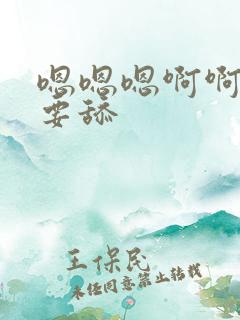 嗯嗯嗯啊啊
要舔
王保民
未经同意禁止转载